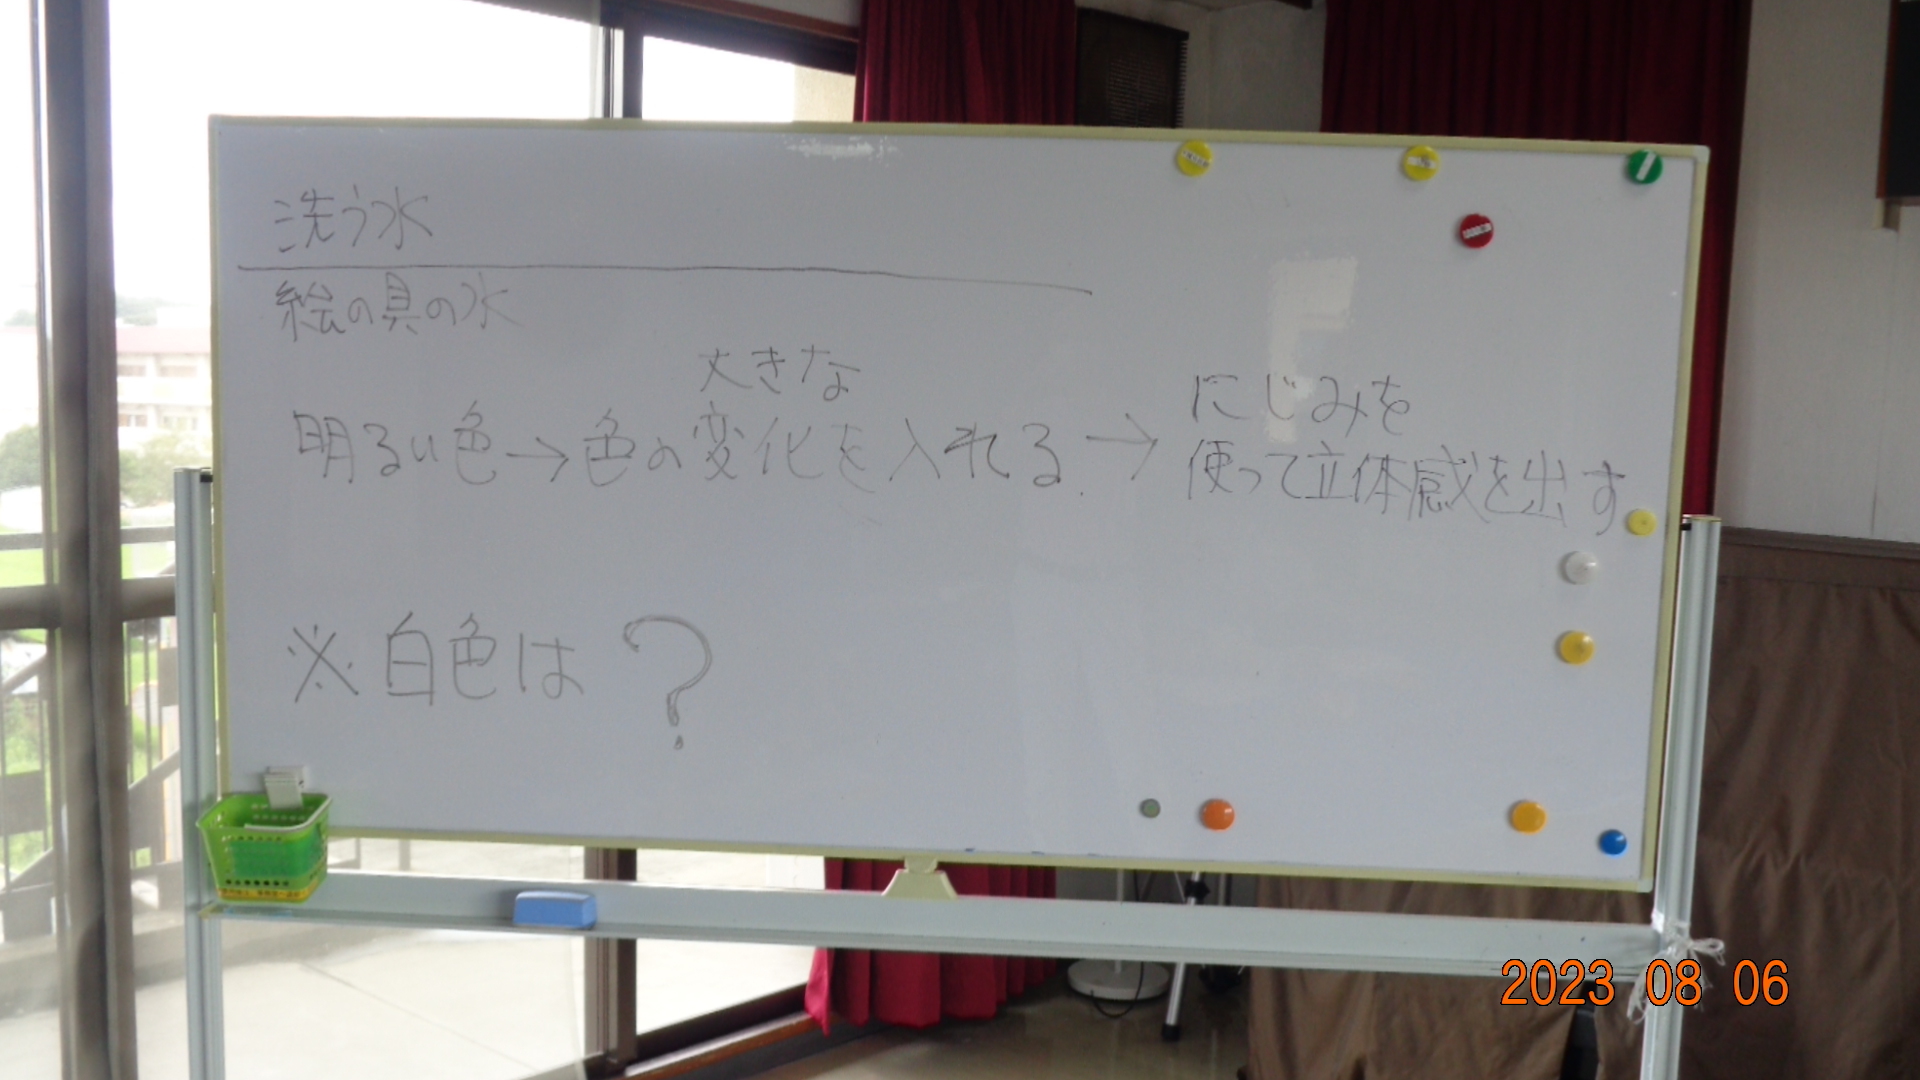 洗う水
絵の具の水
大きな
明るい色→色の変化を入れる→
にじみを
使って立体感を出す
※白色は?
2023 08 06